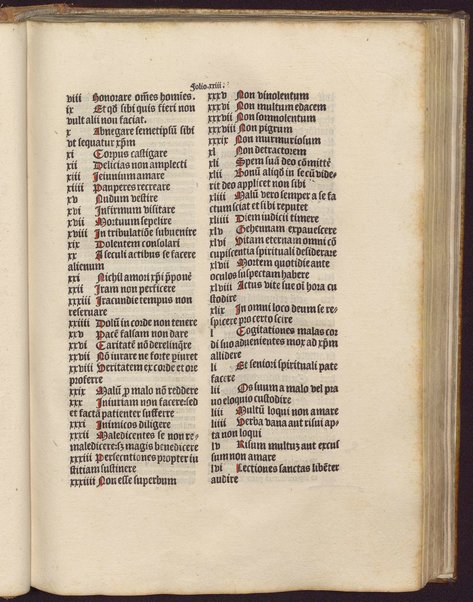 Folio.xxiii.
viii Honorare om̄es homīes.
ix Et qđ sibi quis fieri non
vult alii non faciat.
x Abnegare semetipsū sibi
vt sequatur xp̄m
xi Corpus castigare
xii Delicias non amplecti
xiii Jeiunium amare
xiiii Pauperes recreare
xv Nudum vestire
xvi Infirmum visitare
xvii Mortuum sepelire
xviii In tribulatiōe subuenire
xix Dolentem consolari
xx A seculi actibus se facere
alienum
xxi Nichil amori xp̄i p̄ponē
xxii Iram non perficere
xxiii Iracundie tempus non
reseruare
xxiiii Dolū in corde non tenere
xxv Pacē falsam non dare
xxvi Caritatē nō derelinq̄re
xxvii Nō iurare ne forte piuret
xxviii Veritatem ex corde et ore
proferre
xxix Malū p malo nō reddere
xxx Iniuriam non facere:sed
et factā patienter sufferre
xxxi Inimicos diligere
xxxii Maledicentes se non re-
maledicere:sʒ magis benedicere
xxxiii Persecutiones propter iu
stitiam sustinere
xxxiiii Non esse superbum
xxxv Non vinolentum
xxxvi Non multum edacem
xxxvii Non somnolentum
xxxviii Non pigrum
xxxix Non murmuriosum
xl Non detractorem
xli Spem suā deo cōmittē
xlii Bonū aliqđ in se cū vide-
rit deo applicet non sibi
xliii Malū vero semper a se fa
ctum sciat et sibi reputet
xliiii Diem iudicii timere
xlv Gehennam expauescere
xlvi Vitam eternam omni cō
cupiscentia spirituali desiderare
xlvii Mortem quotidie ante
oculos suspectam habere
xlviii Actus vite sue oī hora cu
stodire
xlix In omni loco deum se re-
spicere pro certo scire
l Cogitationes malas cor
di suo aduenientes mox ad xp̄m
allidere
li Et seniori spirituali pate
facere
lii Os suum a malo vel pra
uo eloquio custodire
liii Multū loqui non amare
liiii Verba vana aut risui ap-
ta non loqui
lv Risum multuʒ aut excus
sum non amare
lvi Lectiones sanctas libēter
audire